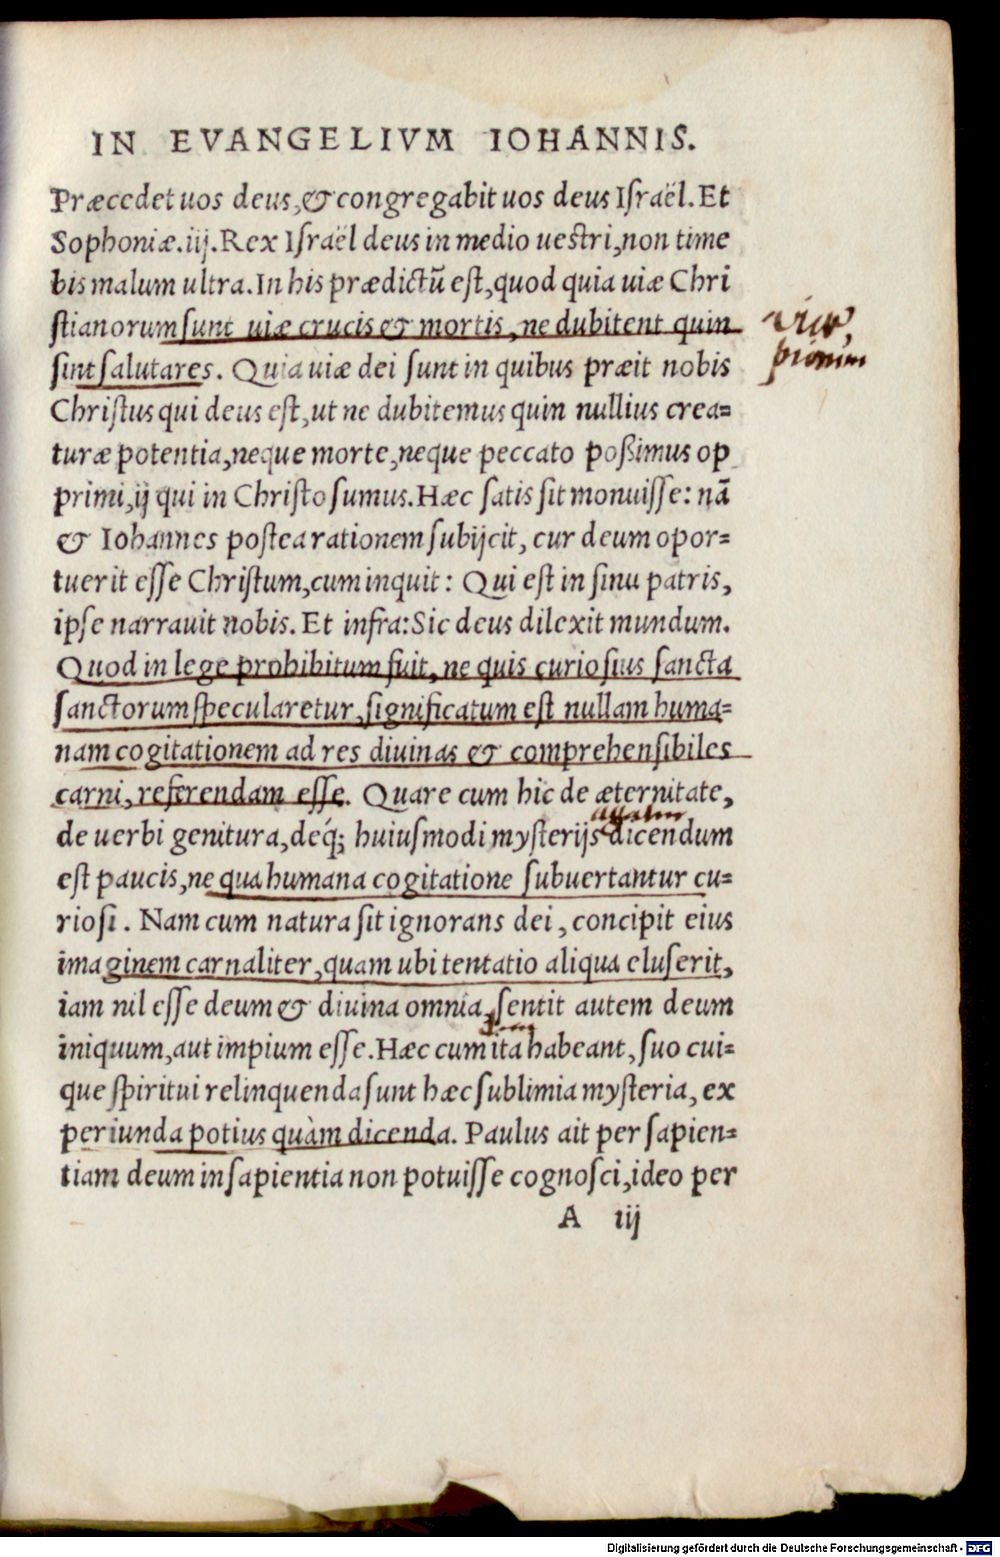 IN EVANGELIVM IOHANNIS.
Præcedet uos deus, & congregabit uos deus Israël. Et
Sophoniæ.iij. Rex Israël deus in medio uestri, non time
bis malum ultra. In his prædictū est, quod quia uiæ Chri
stianorum sunt uiæ crucis & mortis, ne dubitent quin
sint salutares. Quia uiæ dei sunt in quibus præit nobis
Christus qui deus est, ut ne dubitemus quin nullius crea=
turæ potentia, neque morte, neque peccato poßimus op
primi, ij qui in Christo sumus. Hæc satis sit monuisse: nā
& Iohannes postea rationem subijcit, cur deum opor=
tuerit esse Christum, cum inquit: Qui est in sinu patris,
ipse narrauit nobis. Et infra: Sic deus dilexit mundum.
Quod in lege prohibitum fuit, ne quis curiosius sancta
sanctorum specularetur, significatum est nullam huma=
nam cogitationem ad res diuinas & comprehensibiles
carni, referendam esse. Quare cum hic de æternitate,
de uerbi genitura, deq́; huiusmodi mysterijs dicendum
est paucis, ne qua humana cogitatione subuertantur cu=
riosi. Nam cum natura sit ignorans dei, concipit eius
imaginem carnaliter, quam ubi tentatio aliqua eluserit,
iam nil esse deum & diuina omnia, sentit autem deum
iniquum, aut impium esse. Hæc cum ita habeant, suo cui=
que spiritui relinquenda sunt hæc sublimia mysteria, ex
periunda potius quàm dicenda. Paulus ait per sapien=
tiam deum in sapientia non potuisse cognosci, ideo per
A iij
Digitalisierung gefördert durch die Deutsche Forschungsgemeinschaft - DFG